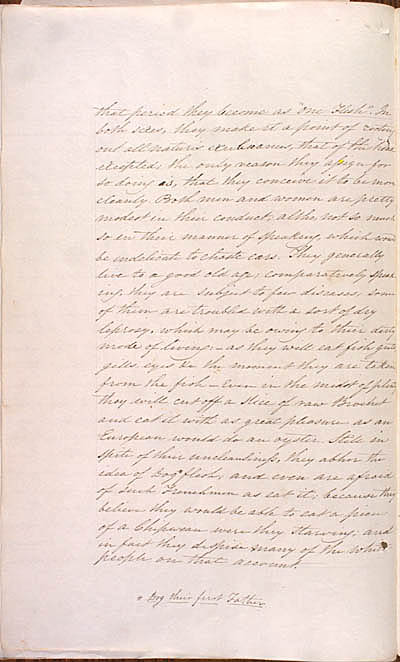 that period they become as "one Flesh". In
both sexes, they make it a point of rooting
out all nature's exuberances, that of the head
excepted; the only reason they assign for
so doing is, that they conceive it to be more
cleanly. Both men and women are pretty
modest in their conduct; altho' not so much
so in their manner of speaking, which would
be indelicate to chaste ears. They generally
live to a good old age; comparatively speak
ing, they are subject to few diseases, some
of them are troubled with a sort of dry
leprosy, which may be owing to their dirty
mode of living; – as they will eat fish guts
gills, eyes &c the moment they are taken
from the fish – Even in the midst of plenty
they will cut off a slice of raw Brochet
and eat it with as great pleasure as an
European would do an oyster. Still in
spite of their uncleanliness, they abhor the
idea of Dog flesh, and even are afraid
of such Frenchmen as eat it; because they
believe they would be able to eat a piece
of a Chipwean were they starving; and
in fact they despise many of the white
people on that account.
* Dog their first Father